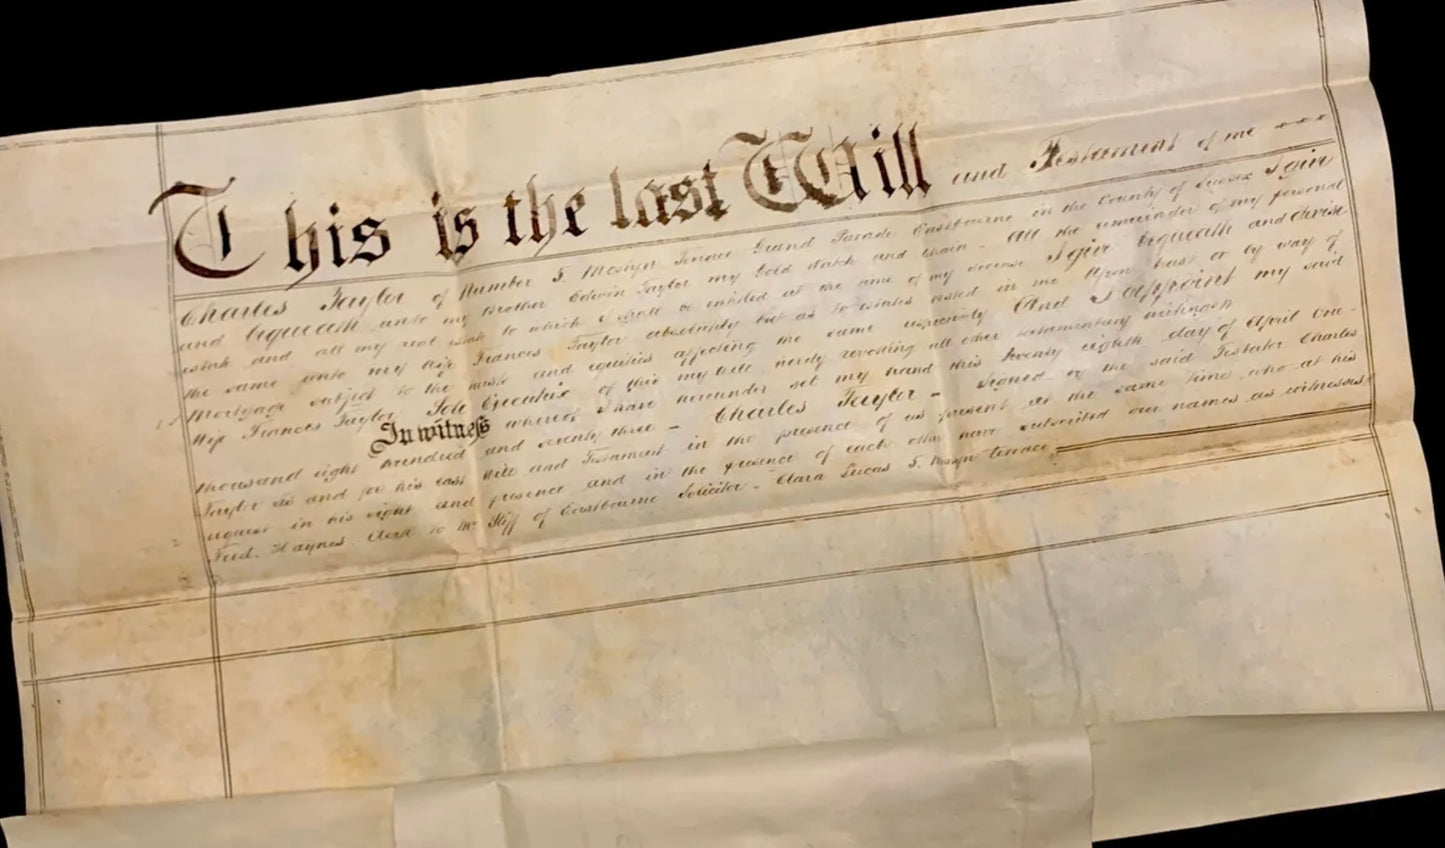 This is the last Will and Testament of me
Charles Taylor of Number 5. Mostyn Terrace Grand Parade Eastbourne in the County of Sussex I give
and bequeath unto my Brother Edwin Taylor my Gold Watch and Chain - All the remainder of my personal
estate and all my real estate to which I shall be entitled at the time of my decease I give bequeath and devise
the same unto my Wife Frances Taylor absolutely but as to estates vested in me upon trust or by way of
Mortgage subject to the trusts and equities affecting the same respectively And I appoint my said
Wife Frances Taylor Sole Executrix of this my Will hereby revoking all other testamentary writings
In witness whereof I have hereunder set my hand this twenty eighth day of April One
thousand eight hundred and seventy three - Charles Taylor - Signed by the said Testator Charles
Taylor as and for his last Will and Testament in the presence of us present at the same time who at his
request in his sight and presence and in the presence of each other have subscribed our names as witnesses
Fred. Haynes Clerk to Mr. Stiff of Eastbourne Solicitor - Clara Lucas 5. Mostyn Terrace